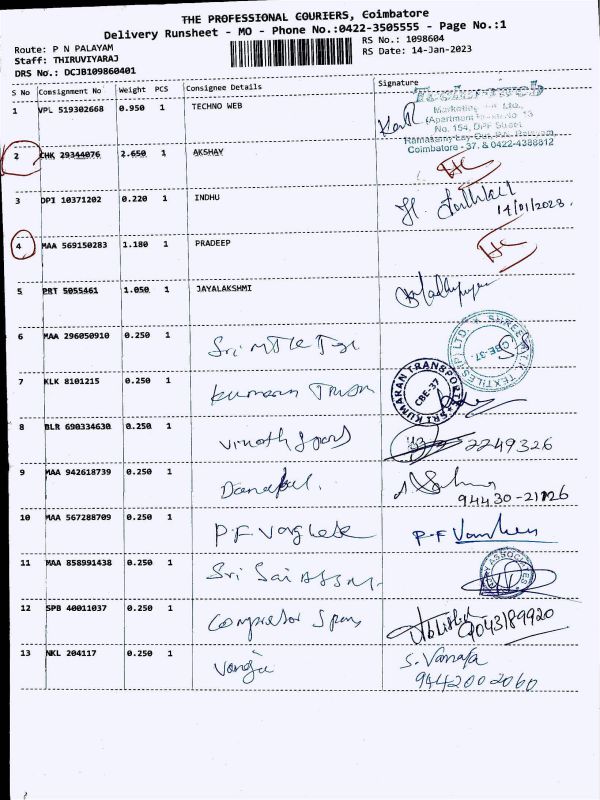 THE PROFESSIONAL COURIERS, Coimbatore
Delivery Runsheet - MO - Phone No.:0422-3505555 - Page No.:1
Route: P N PALAYAM
RS No.: 1098604
Staff: THIRUVIYARAJ
RS Date: 14-Jan-2023
DRS No.: DCJB109860401
S No Consignment No Weight PCS Consignee Details Signature
1 VPL 519302668 0.950 1 TECHNO WEB
Technoweb
Marketing Ltd.,
No. 154, DPF Street
Coimbatore - 37. & 0422-4388812
2 CHK 29344076 2.650 1 AKSHAY
3 DPI 10371202 0.220 1 INDHU
14/01/2023.
4 MAA 569150283 1.180 1 PRADEEP
5 PRT 5055461 1.050 1 JAYALAKSHMI
6 MAA 296050910 0.250 1 Sri
CBE-37.
7 KLK 8101215 0.250 1 Kumaran
SRI KUMARAN TRANSPORT
CBE-37
8 BLR 690334630 0.250 1 Vinoth Spares
2249326
9 MAA 942618739 0.250 1 Danapal.
94430-21126
10 MAA 567288709 0.250 1 P.F Varghese P.F
11 MAA 858991438 0.250 1 Sri Sai
ASSOCIATES
12 SPB 40011037 0.250 1 Compressor Spares
9043189920
13 NKL 204117 0.250 1 Vanaja S. Vanaja
9442002060